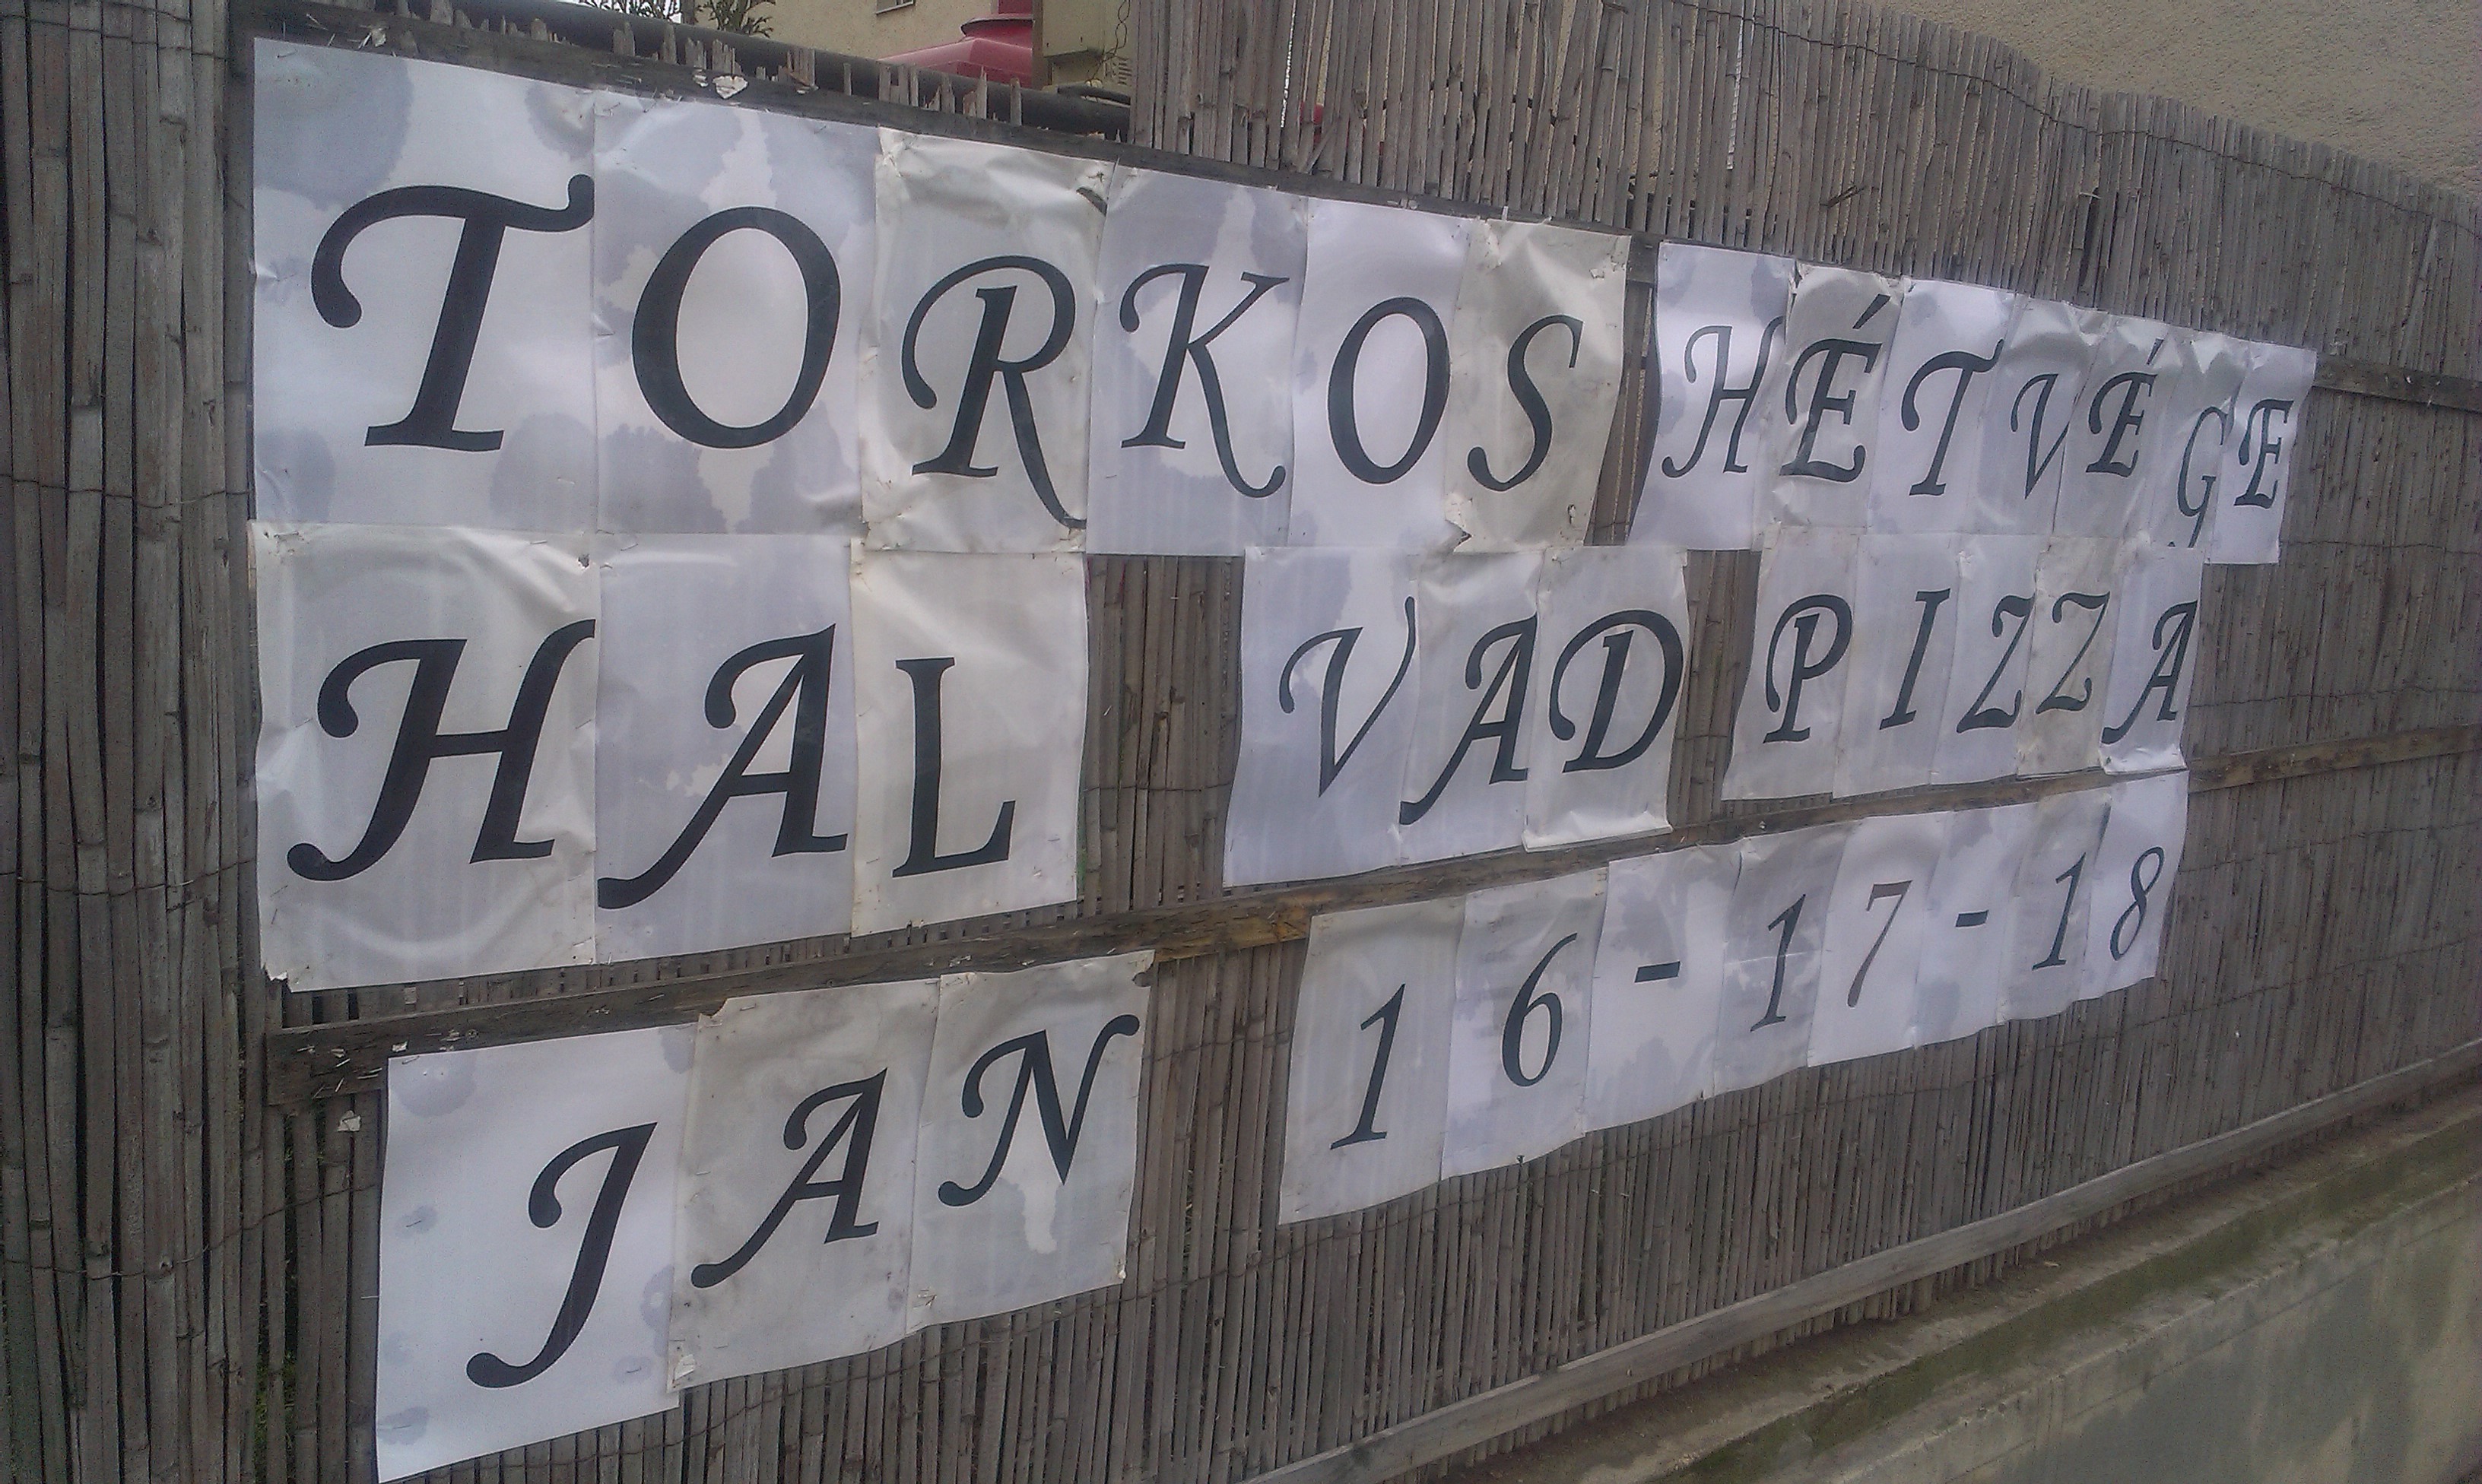 TORKOS HÉTVÉGE
HAL VAD PIZZA
JAN 16-17-18